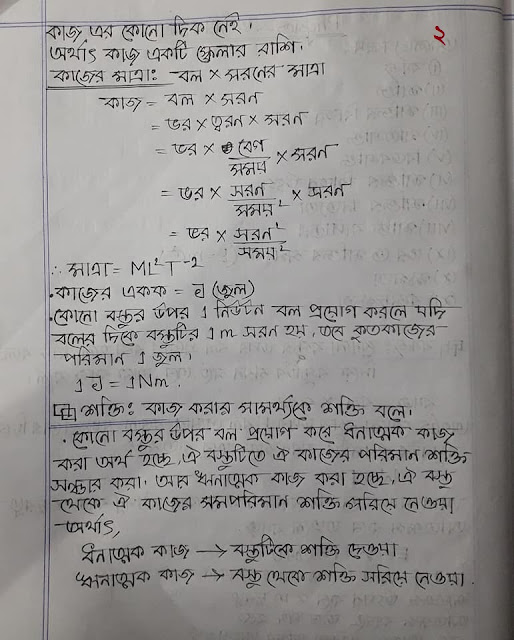 ২
কাজ এর কোনো দিক নেই।
অর্থাৎ কাজ একটি স্কেলার রাশি।
কাজের মাত্রাঃ বল × সরনের মাত্রা
কাজ = বল × সরন
= ভর × ত্বরন × সরন
= ভর × বেগ/সময় × সরন
= ভর × সরন/সময়² × সরন
= ভর × সরন²/সময়²
∴ মাত্রা = ML²T⁻²
• কাজের একক = J (জুল)
• কোনো বস্তুর উপর 1 নিউটন বল প্রয়োগ করলে যদি
বলের দিকে বস্তুটির 1 m সরন হয়, তবে কৃতকাজের
পরিমান 1 জুল।
1 J = 1 Nm.
শক্তিঃ কাজ করার সামর্থ্যকে শক্তি বলে।
• কোনো বস্তুর উপর বল প্রয়োগ করে ধনাত্মক কাজ
করা অর্থ হচ্ছে, ঐ বস্তুটিতে ঐ কাজের পরিমান শক্তি
সঞ্চার করা। আর ঋনাত্মক কাজ করা হচ্ছে, ঐ বস্তু
থেকে ঐ কাজের সমপরিমান শক্তি সরিয়ে নেওয়া
অর্থাৎ,
ধনাত্মক কাজ → বস্তুটিকে শক্তি দেওয়া
ঋনাত্মক কাজ → বস্তু থেকে শক্তি সরিয়ে নেওয়া.